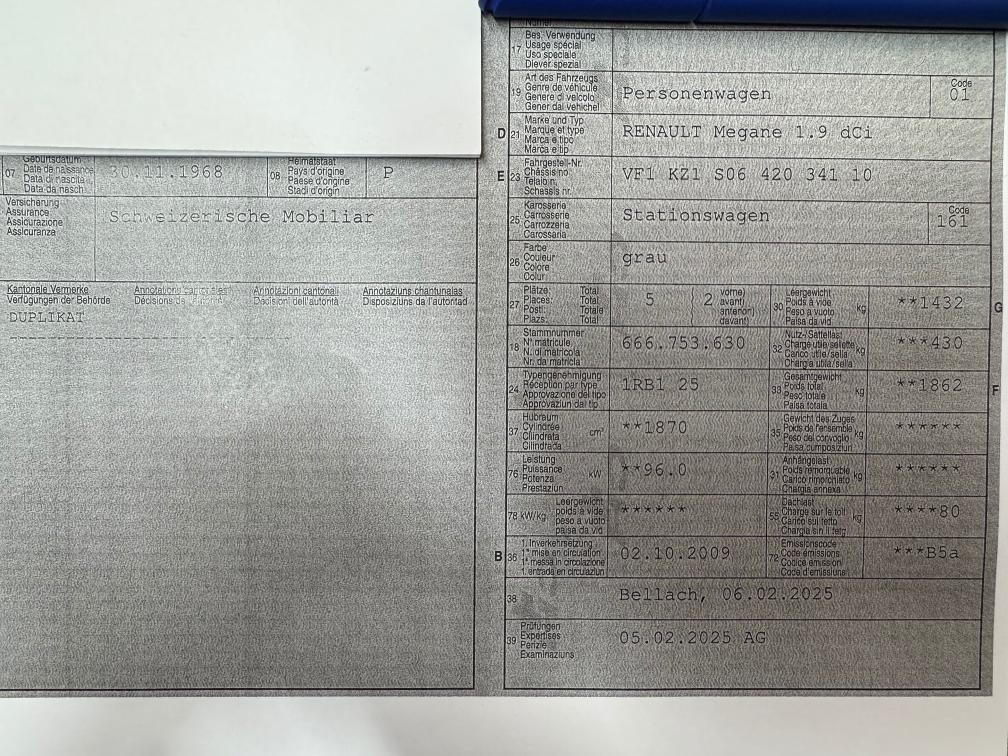 Geburtsdatum
07 Date de naissance
Data di nascita
Data da nasch.
30.11.1968
Heimatstaat
08 Pays d'origine
Paese d'origine
Stadi d'origin
P
Versicherung
Assurance
Assicurazione
Assicuranza
Schweizerische Mobiliar
Kantonale Vermerke
Verfügungen der Behörde
Annotations cantonales
Décisions de
Annotazioni cantonali
Decisioni dell'autorità
Annotaziuns chantunalas
Disposiziuns da l'autoritad
DUPLIKAT
17
Bes. Verwendung
Usage spécial
Uso speciale
Diever spezial
19
Art des Fahrzeugs
Genre de véhicule
Genere di veicolo
Gener dal vehichel
Personenwagen
Code
01
D 21
Marke und Typ
Marque et type
Marca e tipo
Marca e tip
RENAULT Megane 1.9 dCi
E 23
Fahrgestell-Nr.
Châssis no
Telaio n.
Schassis nr.
VF1 KZ1 S06 420 341 10
25
Karosserie
Carrosserie
Carrozzeria
Carossaria
Stationswagen
Code
161
26
Farbe
Couleur
Colore
Colur
grau
27
Plätze: Total
Places: Total
Posti: Totale
Plazs: Total
5
2
vorne)
avant)
anteriori)
davant)
30
Leergewicht
Poids à vide
Peso a vuoto
Paisa da vid
kg
**1432
G
18
Stammnummer
N° matricule
N. di matricola
Nr. da matricla
666.753.630
32
Nutz-/Sattellast
Charge utile/sellette
Carico utile/sella
Chargia utila/sella
kg
***430
24
Typengenehmigung
Réception par type
Approvazione del tipo
Approvaziun dal tip
1RB1 25
33
Gesamtgewicht
Poids total
Peso totale
Paisa totala
kg
**1862
F
37
Hubraum
Cylindrée
Cilindrata
Cilindrada
cm³
**1870
35
Gewicht des Zuges
Poids de l'ensemble
Peso del convoglio
Paisa cumposiziun
kg
******
76
Leistung
Puissance
Potenza
Prestaziun
kW
**96.0
31
Anhängelast
Poids remorquable
Carico rimorchiato
Chargia annexa
kg
******
78 kW/kg
Leergewicht
poids à vide
peso a vuoto
paisa da vid
******
55
Dachlast
Charge sur le toit
Carico sul tetto
Chargia sin il tetg
kg
****80
B 36
1. Inverkehrsetzung
1re mise en circulation
1a messa in circolazione
1. entrada en circulaziun
02.10.2009
72
Emissionscode
Code émissions
Codice emissioni
Code d'emissiuns
***B5a
38
Bellach, 06.02.2025
39
Prüfungen
Expertises
Perizie
Examinaziuns
05.02.2025 AG